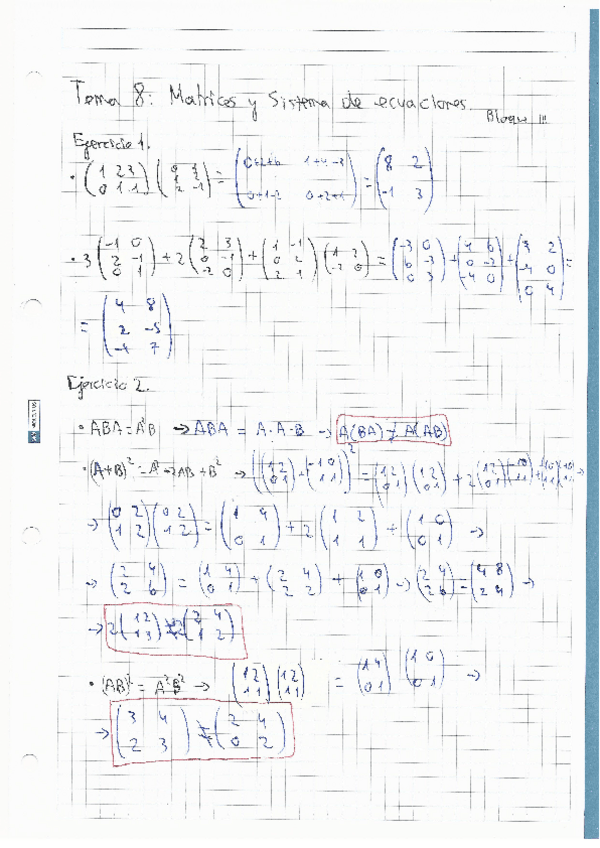 Tema 8: Matrices y Sistema de ecuaciones.
Bloque III
Ejercicio 1.
· (1 2 3 / 0 1 -1) (0 1 / 1 2 / 2 -1) = (0+2+6 1+4-3 / 0+1-2 0+2+1) = (8 2 / -1 3)
· 3 (-1 0 / 2 -1 / 0 1) + 2 (2 3 / 0 -1 / -2 0) + (1 -1 / 0 2 / 2 1) (1 2 / -2 0) = (-3 0 / 6 -3 / 0 3) + (4 6 / 0 -2 / -4 0) + (3 2 / -4 0 / 0 4) =
= (4 8 / 2 -5 / -4 7)
Ejercicio 2.
· ABA = A²B → ABA = A·A·B → A(BA) ≠ A(AB)
· (A+B)² = A² + 2AB + B² → [(1 2 / 0 1) + (-1 0 / 1 1)]² = (1 2 / 0 1) (1 2 / 0 1) + 2 (1 2 / 0 1) (-1 0 / 1 1) + (-1 0 / 1 1) (-1 0 / 1 1) →
→ (0 2 / 1 2) (0 2 / 1 2) = (1 4 / 0 1) + 2 (1 2 / 1 1) + (1 0 / 0 1) →
→ (2 4 / 2 6) = (1 4 / 0 1) + (2 4 / 2 2) + (1 0 / 0 1) → (2 4 / 2 6) = (4 8 / 2 4) →
→ 2 (1 2 / 1 3) ≠ 2 (2 4 / 1 2)
· (AB)² = A²B² → (1 2 / 1 1) (1 2 / 1 1) = (1 4 / 0 1) (1 0 / 0 1) →
→ (3 4 / 2 3) ≠ (2 4 / 0 2)